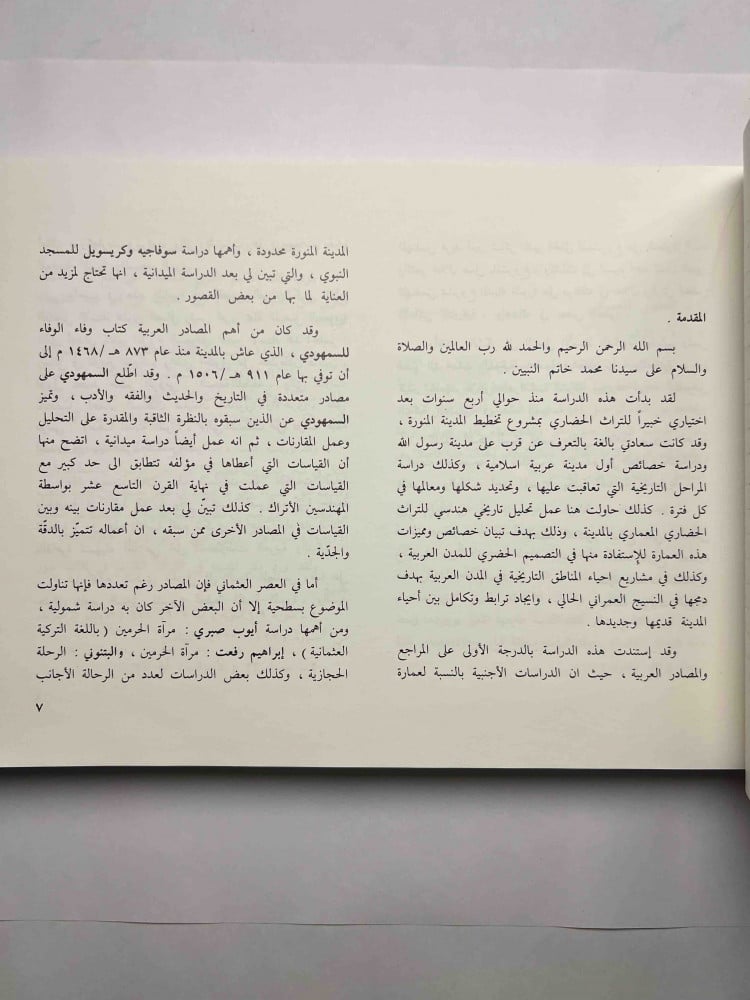 المقدمة .
بسم الله الرحمن الرحيم والحمد لله رب العالمين والصلاة
والسلام على سيدنا محمد خاتم النبيين .
لقد بدأت هذه الدراسة منذ حوالي أربع سنوات بعد
اختياري خبيراً للتراث الحضاري بمشروع تخطيط المدينة المنورة ،
وقد كانت سعادتي بالغة بالتعرف عن قرب على مدينة رسول الله
ودراسة خصائص أول مدينة عربية اسلامية ، وكذلك دراسة
المراحل التاريخية التي تعاقبت عليها ، وتحديد شكلها ومعالمها في
كل فترة . كذلك حاولت هنا عمل تحليل تاريخي هندسي للتراث
الحضاري المعماري بالمدينة ، وذلك بهدف تبيان خصائص ومميزات
هذه العمارة للإستفادة منها في التصميم الحضري للمدن العربية ،
وكذلك في مشاريع احياء المناطق التاريخية في المدن العربية بهدف
دمجها في النسيج العمراني الحالي ، وايجاد ترابط وتكامل بين أحياء
المدينة قديمها وجديدها .
وقد إستندت هذه الدراسة بالدرجة الأولى على المراجع
والمصادر العربية ، حيث ان الدراسات الأجنبية بالنسبة لعمارة
المدينة المنورة محدودة ، وأهمها دراسة سوفاجيه وكريسويل للمسجد
النبوي ، والتي تبين لي بعد الدراسة الميدانية ، انها تحتاج لمزيد من
العناية لما بها من بعض القصور .
وقد كان من أهم المصادر العربية كتاب وفاء الوفاء
للسمهودي ، الذي عاش بالمدينة منذ عام ٨٧٣ هـ /١٤٦٨ م إلى
أن توفي بها عام ٩١١ هـ /١٥٠٦ م . وقد اطّلع السمهودي على
مصادر متعددة في التاريخ والحديث والفقه والأدب ، وتميز
السمهودي عن الذين سبقوه بالنظرة الثاقبة والمقدرة على التحليل
وعمل المقارنات ، ثم انه عمل أيضاً دراسة ميدانية ، اتضح منها
أن القياسات التي أعطاها في مؤلفه تتطابق الى حد كبير مع
القياسات التي عملت في نهاية القرن التاسع عشر بواسطة
المهندسين الأتراك . كذلك تبيّن لي بعد عمل مقارنات بينه وبين
القياسات في المصادر الأخرى ممن سبقه ، ان أعماله تتميّز بالدقّة
والجدّية .
أما في العصر العثماني فإن المصادر رغم تعددها فإنها تناولت
الموضوع بسطحية إلا أن البعض الآخر كان به دراسة شمولية ،
ومن أهمها دراسة أيوب صبري : مرآة الحرمين ( باللغة التركية
العثمانية ) ، إبراهيم رفعت : مرآة الحرمين ، والبتنوني : الرحلة
الحجازية ، وكذلك بعض الدراسات لعدد من الرحالة الأجانب
٧